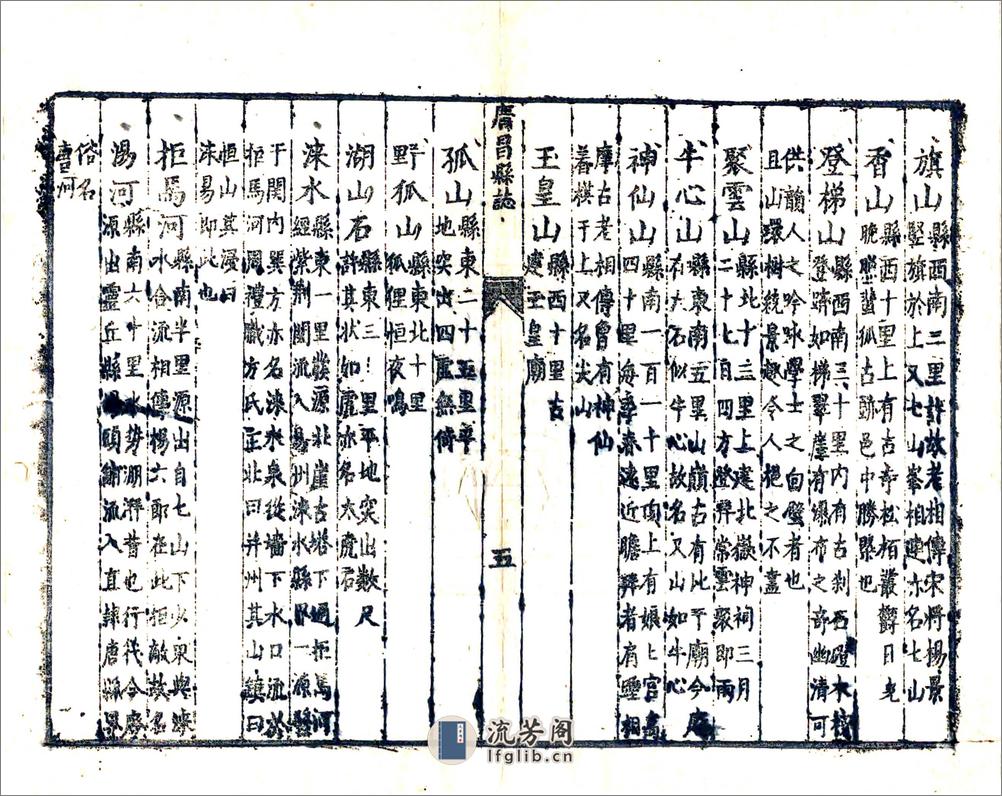 旗山縣西南三里許故老相傳宋將楊景
竪旗於上又七山峯相連亦名七山
香山縣西十里上有古寺松栢叢欝日
晚聖蜚狐古跡邑中勝槩也
登梯山縣西南三十里內有古刹石磴木棧
登躋如梯翠崖有瀑布之奇幽清可
供韻人之吟咏學士之回壁者也
且山環樹繞景趣令人挹之不盡
聚雲山縣北十三里上建北嶽神祠三月
二十七日四方登拜常雲聚即雨
牛心山縣東南五里山嶺古有比干廟今廢
有大石似牛心故名又山如牛心
神仙山縣南一百一十里頂上有娘匕宮高
四十里每季春遠近瞻拜者有靈相
摩古老相傳曾有神仙
善棋于上又名尖山
玉皇山縣西十里古
建玉皇廟
廣昌縣誌
五
孤山縣東二十五里平
地突出四靣無倚
野狐山縣東北十里
狐狸恒夜鳴
湖山石縣東三里平地突出數尺
許其狀如虎亦名大虎石
淶水縣東一里發源北崖古塔下過拒馬河
經紫荆關流入州淶水縣界一源醫
于関內巽方亦名淶水泉從墻下水口流於
拒馬河周禮職方氏正北曰并州其山鎮曰
恒山其浸曰
淶易即此也
拒馬河縣南半里源出自七山下少東與淶
水合流相傳楊六郎在此拒敵故名
湯河縣南六十里水勢湖湃昔也行伐今廢
源出靈丘縣頭鋪流入直隷唐縣界
俗名
唐河
流芳阁
lfglib.cn